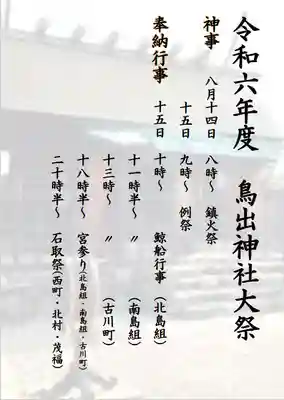 令和六年度 鳥出神社大祭
神事 八月十四日 八時～ 鎮火祭
十五日 九時～ 例祭
奉納行事 十五日 十時～ 鯨船行事(北島組)
十一時半～ 〃 (南島組)
十三時～ 〃 (古川町)
十八時半～ 宮参り(北島組・南島組・古川町)
二十時半～ 石取祭(西町・北村・茂福)